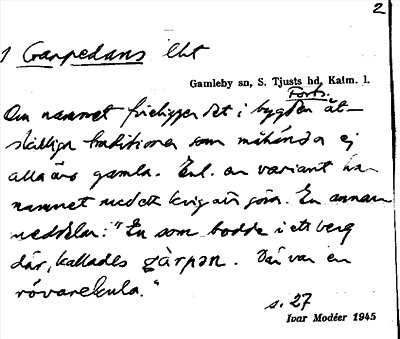 2
1 Garpedans liht
Gamleby sn, S. Tjusts hd, Kalm. l.
Forts.
Om namnet föreligger det i bygden åt-
skilliga traditioner som måhända ej
alla äro gamla. Enl. en variant har
namnet med ett krig att göra. En annan
meddelar: "En som bodde i ett berg
där, kallades gàrpən. Där var en
rövarekula."
s. 27
Ivar Modéer 1945